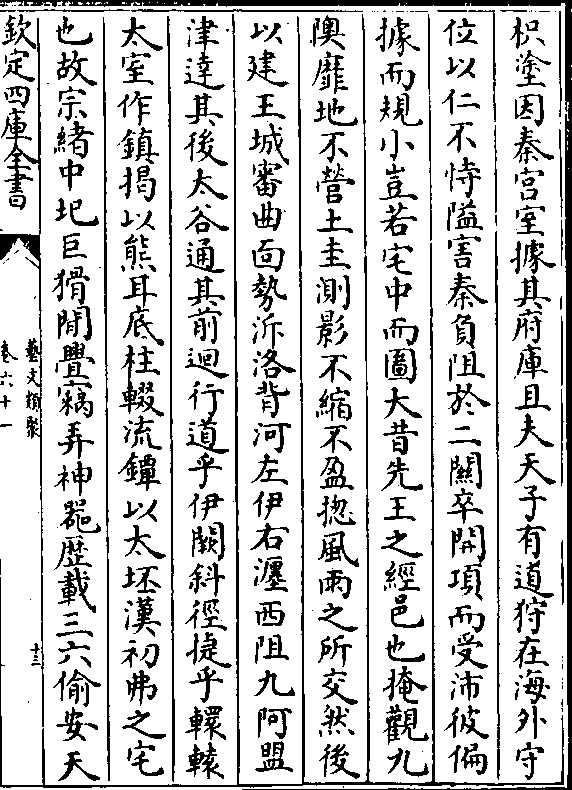 枳塗因秦宫室據其府庫且夫天子有道狩在海外守
位以仁不恃隘害秦負阻於二關卒開項而受沛彼偏
據而規小豈若宅中而圖大昔先王之經邑也掩觀九
隩靡地不營土圭測影不縮不盈揔風雨之所交然後
以建王城審曲面勢泝洛背河左伊右瀍西阻九阿盟
津達其後太谷通其前迴行道乎伊闕斜徑捷乎轘轅
太室作鎮揭以熊耳底柱輟流鐔以太坯漢初弗之宅
也故宗緒中圮巨猾間舋竊弄神器歴載三六偷安天
欽定四庫全書
藝文類聚
卷六十一
十三